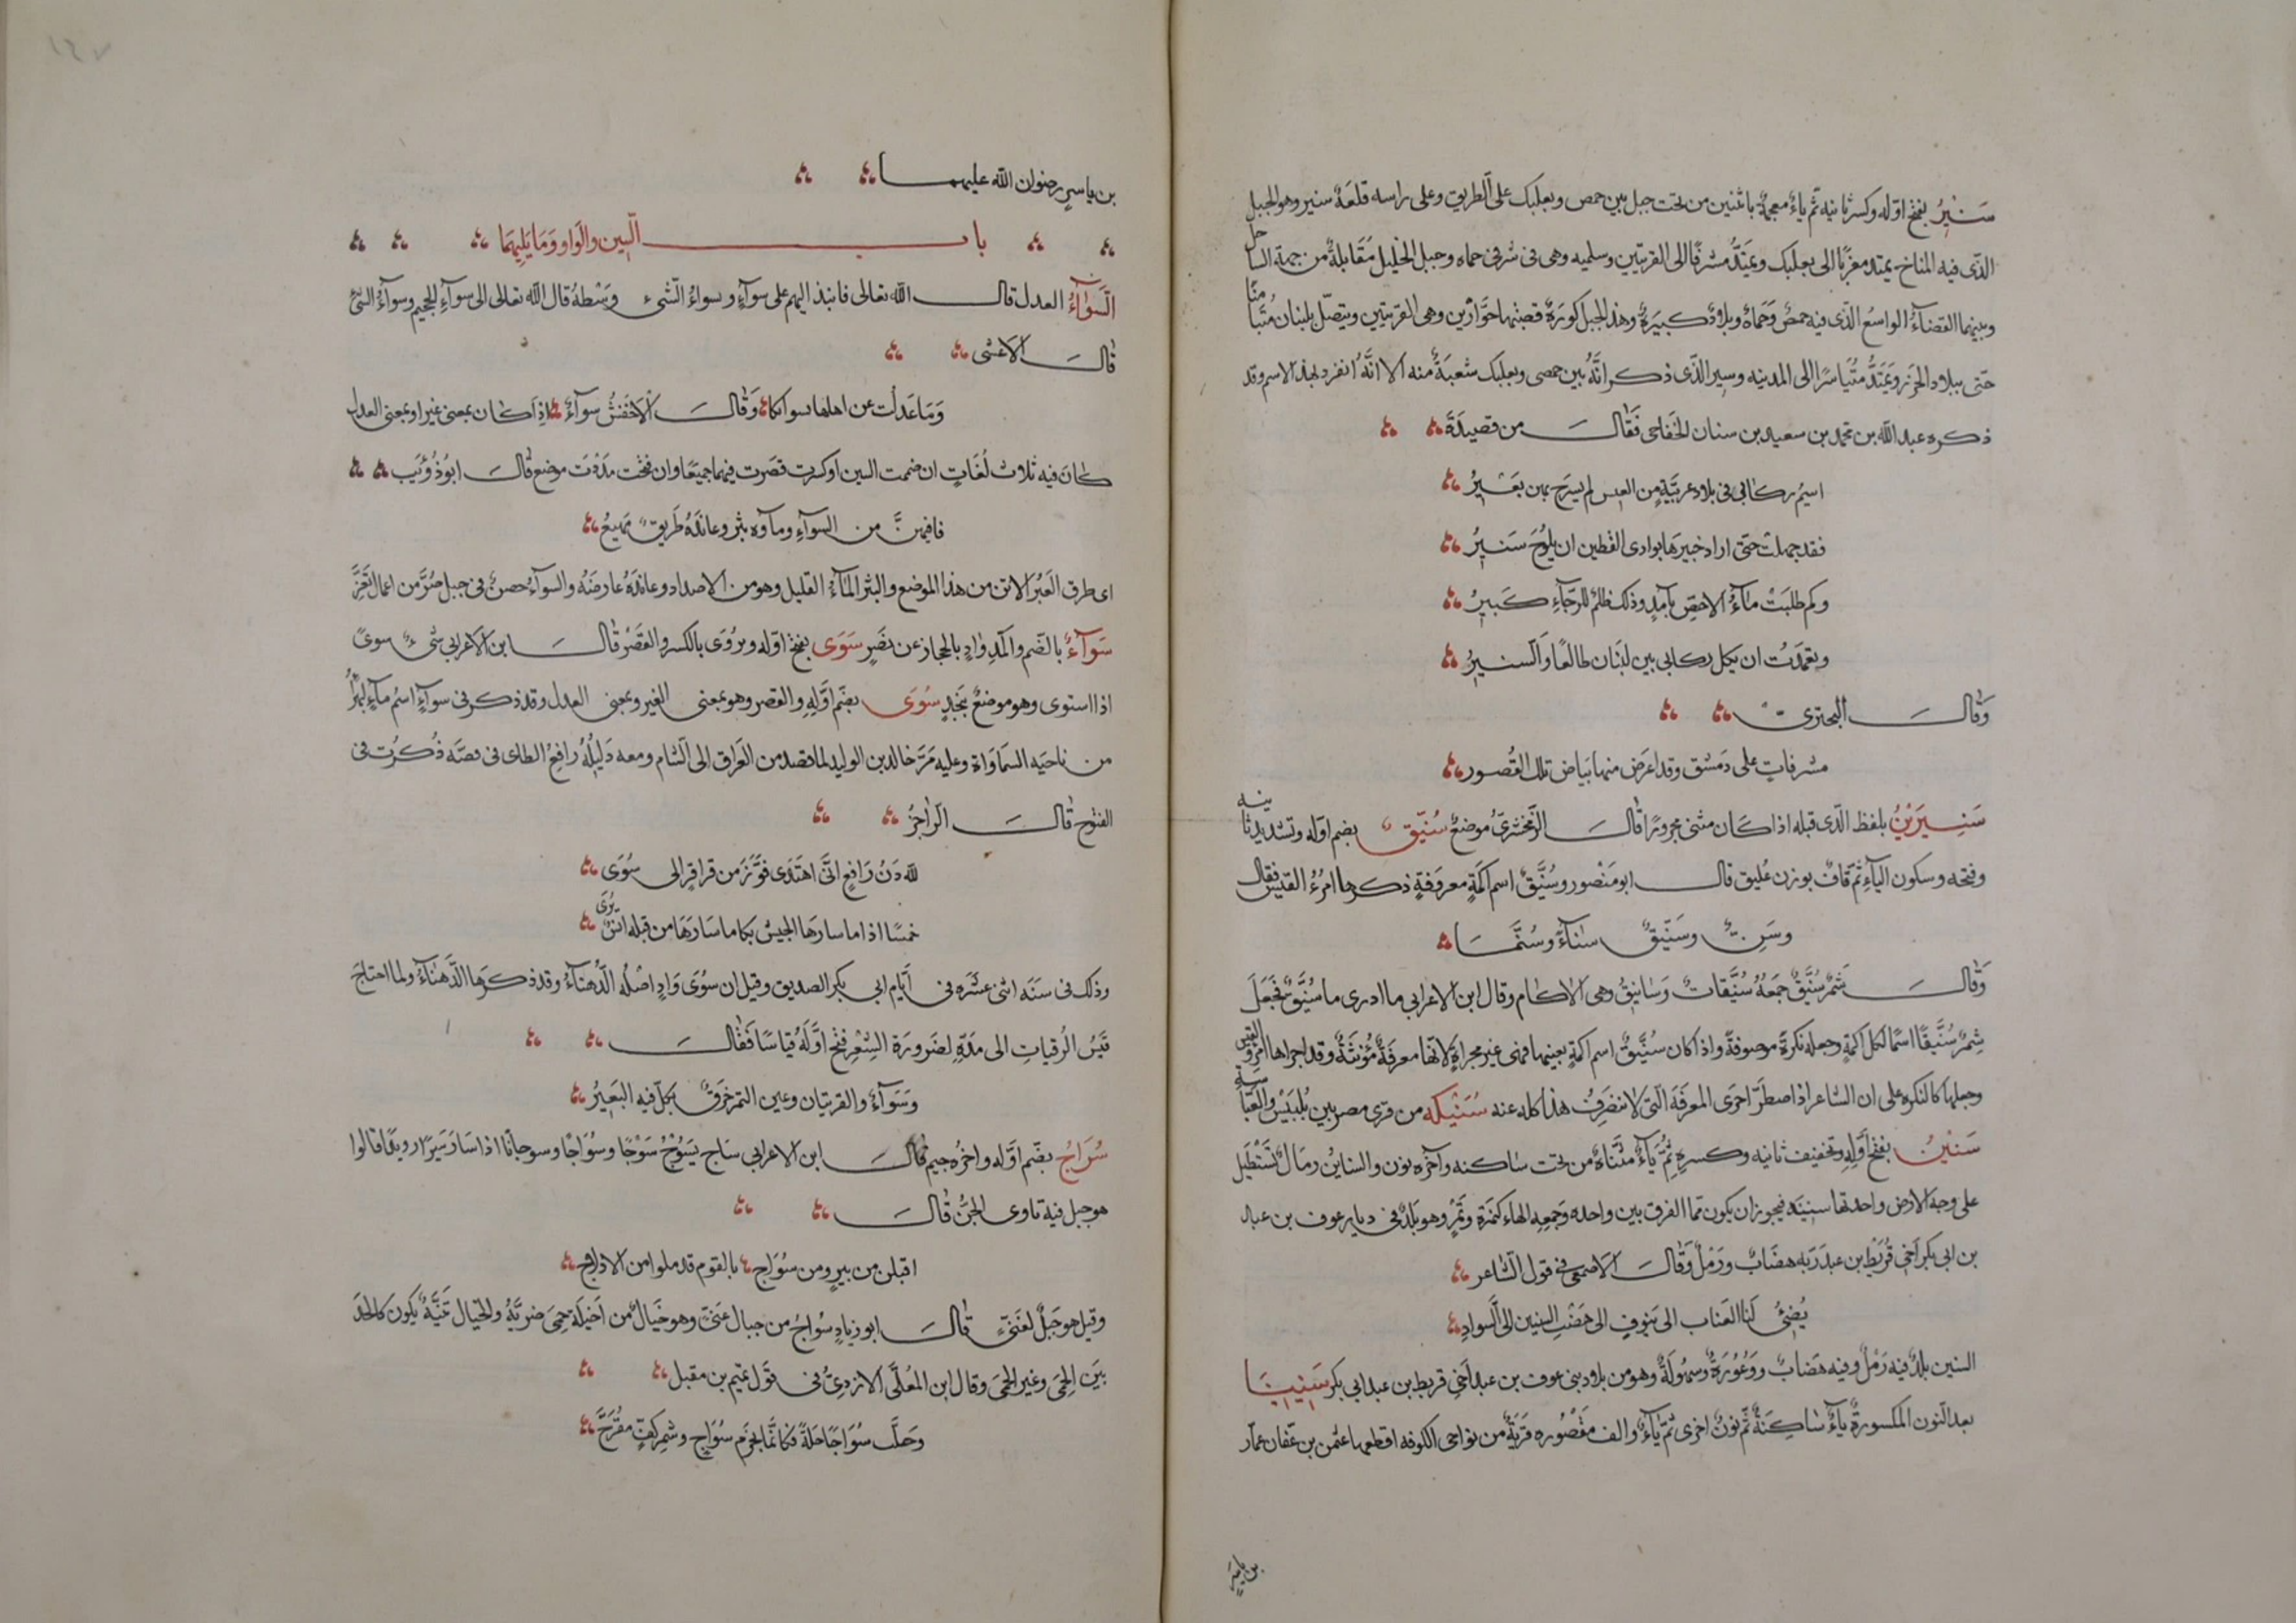 سَنِيرُ بفتح اوّله وكسر ثانيه ثم ياءٌ معجمةٌ باثنين من تحت جبل بين حمص وبعلبك على الطريق وعلى راسه قلعَةُ سنير وهو الجبل
الذى فيه المناخ يمتد مغربًا الى بعلبك ويمتدُّ مشرقًا الى القريتين وسلميه وهى فى شرقى حماه وجبل الجليل مُقَابلةٌ من جهة الساحل
وبينهما الفضاءُ الواسعُ الذى فيه حمصٌ وحَماهُ وبلادٌ كبيرَةٌ وهذا الجبل كورَةٌ قصبتها حوّارُين وهى القريتين ويتصّل بلبنان مُتيامنًا
حتى ببلاد الخزر ويَمتدُّ مُتَياسرًا الى المدينه وسنير الذى ذكر انّهُ بين حمص وبعلبك شعبَةٌ منه الا انّهُ انفرد بهذا الاسم وقد
ذكره عبد الله بن محمد بن سعيد بن سنان الخفاجى فَقَال من قصيدَة
اسيمُ ركابى فى بلاد غريبةٍ من العيس لم يسرح بهن بعَيرُ
فقد جهلت حتى اراد خبيرها بوادى القطين ان يلوحَ سَنيرُ
وكم طلبَتْ ماءَ الاحصّ بآمدٍ وذلك ظلمٌ للرجاءِ كَبيرُ
وتعمدَتُ ان يكل ركابى بين لبنَان طالعًا والسنيرُ
وقال البحترىّ
مشرفات على دمشق وقد اعرض منها بَياض تلك القُصور
سَنيريْنِ بلفظ الذى قبله اذا كان مثنى مجرورًا قال الزمخشرىُّ موضعٌ سُنَيّق بضم اوّله وتشديد ثانيه
وفتحه وسكون الياءِ ثم قافٌ بوزن عُليق قال ابو مَنصور وسُنَّيقٌ اسم اكمةٍ معروفةٍ ذكرها امرُءُ القيس فقال
وسِنٍّ وسُنَّيقٍ سناءً وسُنَّمًا
وَقال شَمِرٌ سُنَّيقٌ جمعُهُ سُنَّيقات وَسانيقُ وهى الاكام وقال ابن الاعرابى ما ادرى ما سُنَّيقٌ فجعَلَ
شِمرٌ سُنَّيقًا اسمًا لكل اكمةٍ وجعله نكرةً موصوفةً واذا كان سُنَّيقُ اسم اكمةٍ بعينها فهى غير مجراةٍ لانها معرفةٌ مُؤنثَةٌ وقد اجراها امرؤ القيس
وجعلها كالنكره على ان الشاعر اذا اضطرّ اجرى المعرفَة التى لا تنصَرِفُ هذا كله عنه سُنَيْكه من قرى مصر بين بُلبَيْس والعبّاسة
سَنينُ بفتح اوَّله وتخفيف ثانيه وكسره ثُمّ ياءٌ مثنّاةٌ من تحت ساكنه وآخره نون والسناينُ رمالٌ تَستَطيل
على وجه الارض واحدتها سنينَة فيجوز ان يكون مما الفرق بين واحده وجمعِهِ الهاء كتمرَة وتمرٌ وهو بلدٌ فى ديار عوف بن عبد
بن ابى بكر اَخى قُريْط بن عبد رَبّه هضَابٌ ورَمْلٌ وَقال الاصمعى فى قول الشاعر
يُضِئُ لَنا العناب الى يَنوفٍ الى هَضْب السنين الى السوادِ
السنين بلدٌ فيه رَمْلٌ وفيه هَضابٌ ووُعُورَةٌ وسهُولَةٌ وهو من بلاد بنى عوف بن عبد اَخى قريط بن عبد ابى بكر سَنِينيَا
بعد النون المكسورة ياءٌ سَاكِنَةٌ ثمّ نونٌ اخرى ثمّ يَاءٌ والف مَقصُوره قَريَةٌ من نواحى الكوفه اقطعها عثمن بن عفان عمّار
بن ياسر
بن ياسرٍ رضوان الله عليهما
باب السّين والوَاو وَمَا يَليهمَا
السَّوَآءُ العدل قال الله تعالى فانبذ اليهم على سوآءٍ وسواءُ الشئ وَسْطهُ قال الله تعالى الى سوآءِ الجحيم وسوآءُ الشئ
قال الاعشى
وَمَا عَدلت عن اهلها سوائكا وَقال الاخفشُ سوآءٌ اذا كان بمعنى غير او بمعنى العدل
كان فيه ثلاث لُغَاتٍ ان ضممت السين او كسرت قصَرت فيهما جميعًا وان فتحت مَدَدْت موضع قال ابوُ ذُؤَيب
فافتنهنَّ من السوآءِ وماؤه بثر وعاندَهُ طَريقٌ مَهيعُ
اى طرق العَيْرُ الاتن من هذا الموضع والبثر المآءُ القليل وهو من الاضداد وعاندَهُ عارضَهُ والسوآءُ حصنٌ فى جبل صُرَّ من اعمال تَعزّ
سُوَآءٌ بالضّم والمدّ وادٍ بالحجاز عن نصَرٍ سَوَى بفتح اوّله ويروَى بالكسر والقَصْرُ قال ابن الاعرابى شىءٌ سوىً
اذا استوى وهو موضعٌ بنَجدٍ سُوَى بضَم اوّلهِ والقصر وهو بمعنى الغير وبمعنى العدل وقد ذكر فى سوآءٍ اسمُ مآءٍ لبهراءُ
من ناحيَه السمَاوَاة وعليه مَرَّ خالد بن الوليد لما قصد من العراق الى الشام ومعه دَليلُهُ رافِعُ الطائى فى قصّه ذُكرت فى
الفتوح قال الراجزُ
لله دَرُّ رَافِعٍ انّى اهتَدَى فوَّزَ من قراقرٍ الى سُوَى
خمسًا اذا ما سارها الجيش بكى ما سَارَهَا من قبله انسٌ يُرى
وذلك فى سنَه اثنى عشَره فى ايّام ابى بكر الصديق وقيل ان سوَى وَادٍ اصْلُه الدّهنآءُ وقد ذكرَها الدَّهنآءُ ولما احتاجَ
قيسُ الرُقيات الى مَدّهِ لضَرورة الشِعْرِ فتح اوَّلَهُ قياسًا فَقال
وَسَوآءٌ والقريتان وعين التمر خَرقٌ يكلّ فيه البَعيرُ
سُوَاجُ بضَّم اوّله واخرُه جيم قال ابن الاعرابى سَاج يَسُوْجُ سَوْجًا وسُوَاجًا وسوجانًا اذا سَارَ سَيرًا رويدًا قالوا
هو جبل فيه تاوى الجنُّ قال
اقبلن من بيرٍ ومن سُوَاج بالقوم قد ملوا من الادلاج
وقيل هو جَبَلٌ لغَنىّ قال ابو زيادٍ سُوَاجُ من جبال غَنىٍّ وهو خيَالٌ من اَخيلَة حِمَى ضريَّةُ والخيال ثَنيَّةٌ يكون كالحدَ
بَين الحِمَى وغير الحِمَى وقال ابن المُعلَّى الازدىُّ فى قَول تميم بن مقبل
وَحلَّت سُوَاجًا حلةً فكانمَّا بحزم سُوَاجٍ وشم كفٍّ مُقرَّحَ